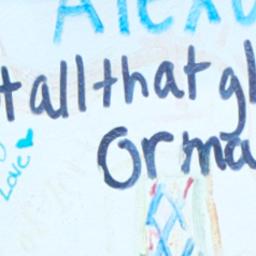 Alexa
t all that gl
Or ma
Love